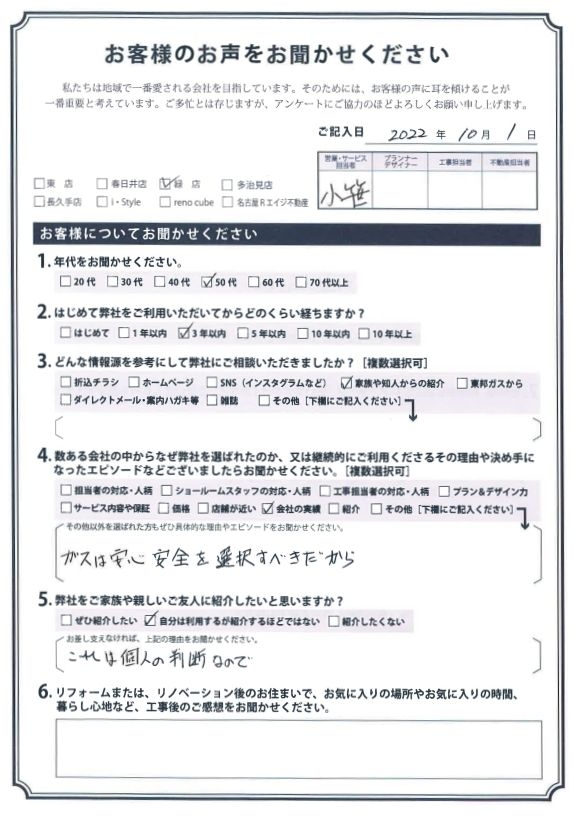 お客様のお声をお聞かせください
私たちは地域で一番愛される会社を目指しています。そのためには、お客様の声に耳を傾けることが
一番重要と考えています。ご多忙とは存じますが、アンケートにご協力のほどよろしくお願い申し上げます。
ご記入日 2022 年 10 月 1 日
営業・サービス担当者 プランナーデザイナー 工事担当者 不動産担当者
小笹
□東 店 □春日井店 ☑緑 店 □多治見店
□長久手店 □i・Style □reno cube □名古屋Rエイジ不動産
お客様についてお聞かせください
1. 年代をお聞かせください。
□20代 □30代 □40代 ☑50代 □60代 □70代以上
2. はじめて弊社をご利用いただいてからどのくらい経ちますか?
□はじめて □1年以内 ☑3年以内 □5年以内 □10年以内 □10年以上
3. どんな情報源を参考にして弊社にご相談いただきましたか?[複数選択可]
□折込チラシ □ホームページ □SNS(インスタグラムなど) ☑家族や知人からの紹介 □東邦ガスから
□ダイレクトメール・案内ハガキ等 □雑誌 □その他[下欄にご記入ください]
4. 数ある会社の中からなぜ弊社を選ばれたのか、又は継続的にご利用くださるその理由や決め手に
なったエピソードなどございましたらお聞かせください。[複数選択可]
□担当者の対応・人柄 □ショールームスタッフの対応・人柄 □工事担当者の対応・人柄 □プラン&デザイン力
□サービス内容や保証 □価格 □店舗が近い ☑会社の実績 □紹介 □その他[下欄にご記入ください]
その他以外を選ばれた方もぜひ具体的な理由やエピソードをお聞かせください。
ガスは安心安全を選択すべきだから
5. 弊社をご家族や親しいご友人に紹介したいと思いますか?
□ぜひ紹介したい ☑自分は利用するが紹介するほどではない □紹介したくない
お差し支えなければ、上記の理由をお聞かせください。
これは個人の判断なので
6. リフォームまたは、リノベーション後のお住まいで、お気に入りの場所やお気に入りの時間、
暮らし心地など、工事後のご感想をお聞かせください。